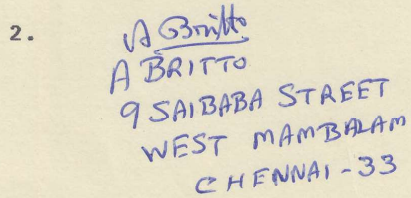 2. A Britto
A BRITTO
9 SAIBABA STREET
WEST MAMBALAM
CHENNAI - 33